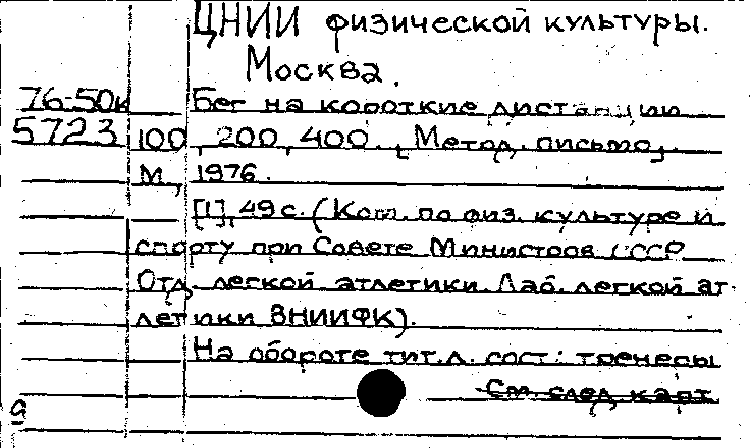 ЦНИИ физической культуры.
Москва.
76-50к Бег на короткие дистанции
5723 100, 200, 400. [Метод. письмо].
М., 1976.
[1], 49 с. (Ком. по физ. культуре и
спорту при Совете Министров СССР
Отд. легкой атлетики. Лаб. легкой ат-
летики ВНИИФК).
На обороте тит. л. сост.: тренеры
См. след. карт
а